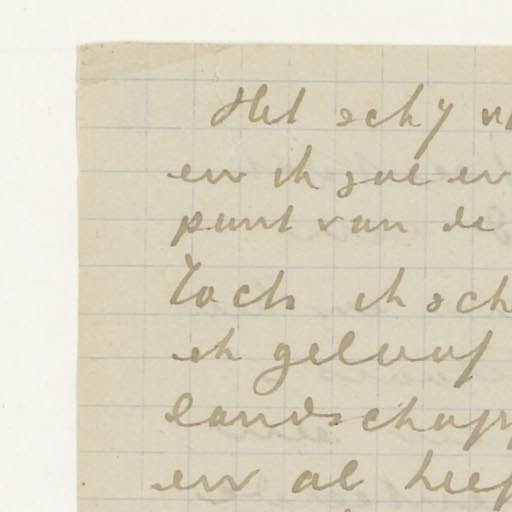 Het schy
en ik zal en
punt van de
Toch ik sch
ik geloof
landschapp
en al heef